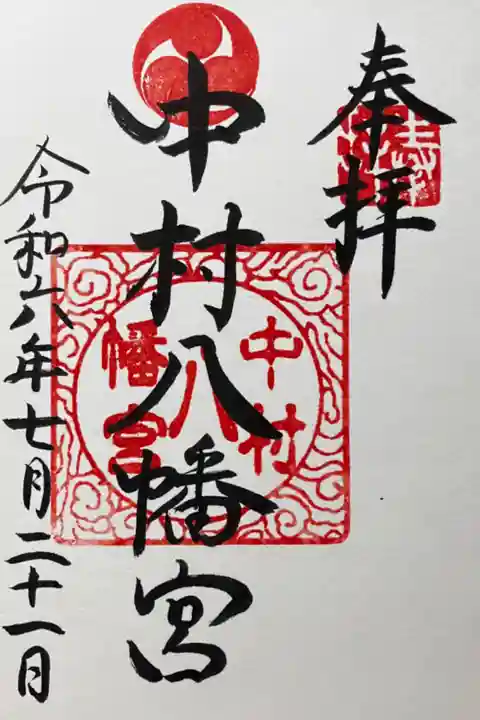 奉拝
中村八幡宮
中村
八
幡宮
令和六年七月二十一日